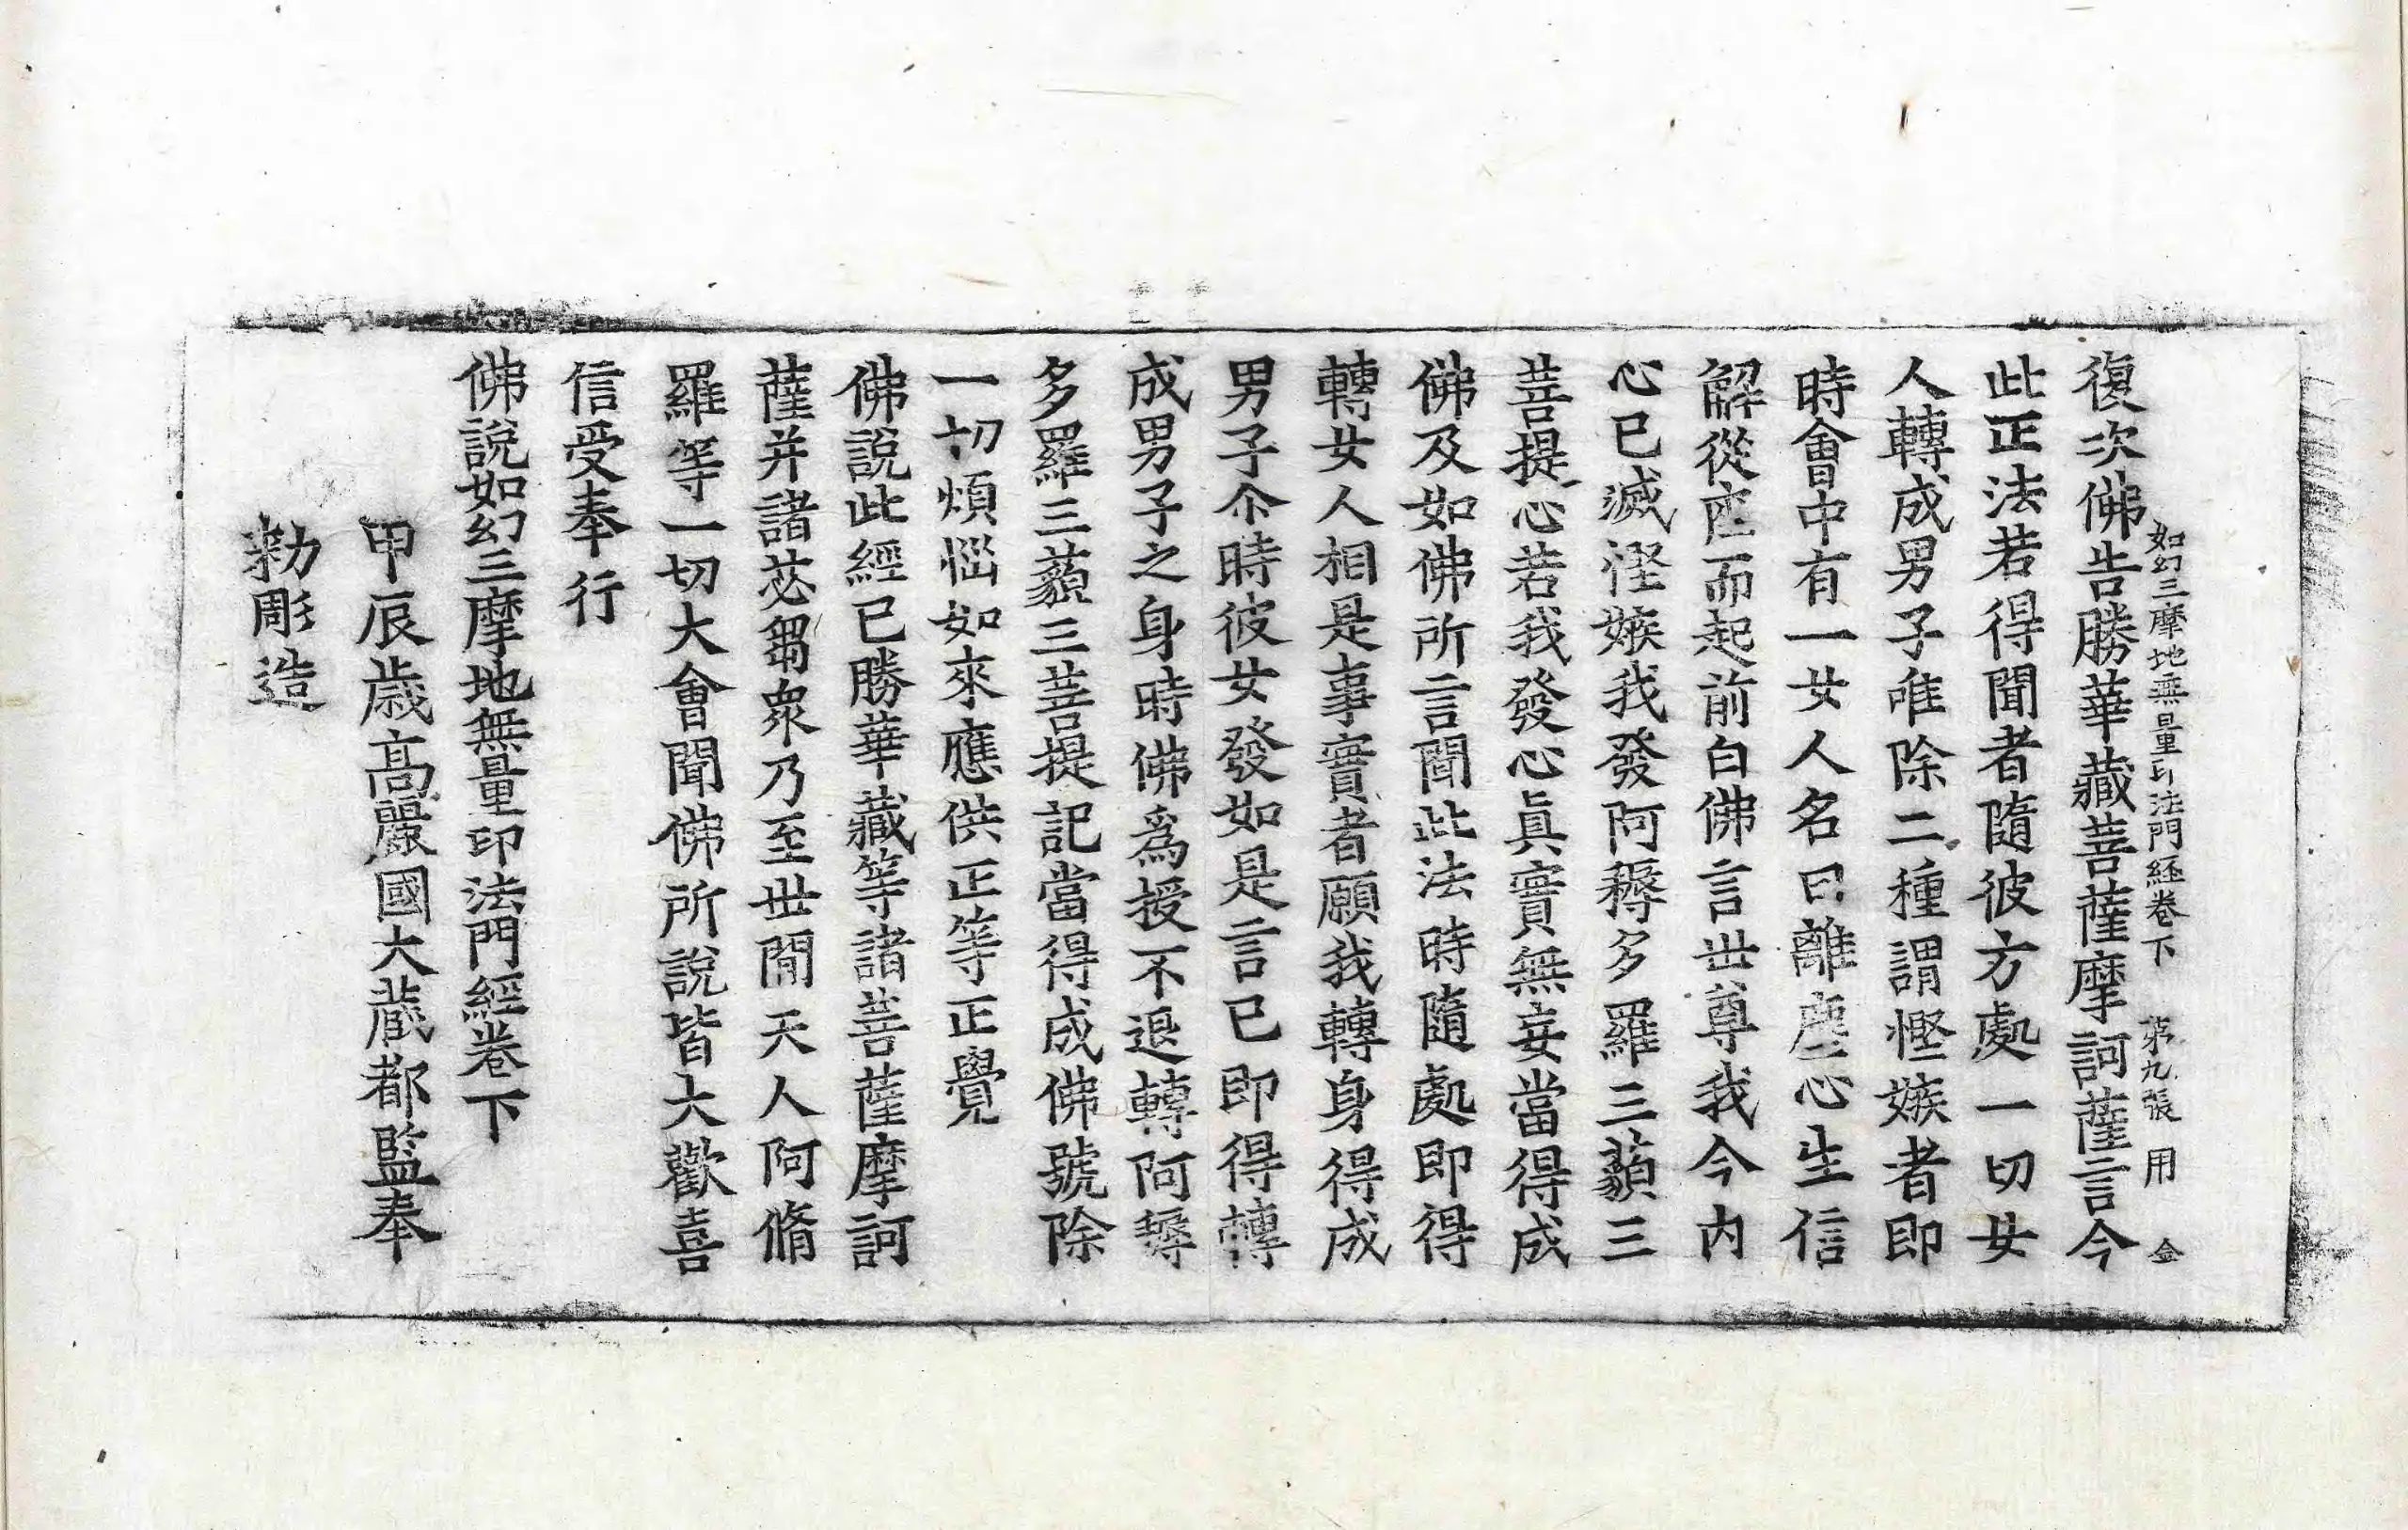 如幻三摩地無量印法門経卷下 第九張 用 金
復次佛告勝華藏菩薩摩訶薩言今
此正法若得聞者隨彼方處一切女
人轉成男子唯除二種謂慳嫉者即
時會中有一女人名曰離塵心生信
解從座而起前白佛言世尊我今内
心已滅慳嫉我發阿耨多羅三藐三
菩提心若我發心眞實無妄當得成
佛及如佛所言聞此法時隨處即得
轉女人相是事實者願我轉身得成
男子尒時彼女發如是言已即得轉
成男子之身時佛爲授不退轉阿耨
多羅三藐三菩提記當得成佛號除
一切煩惱如來應供正等正覺
佛說此經已勝華藏等諸菩薩摩訶
薩并諸苾芻衆乃至世間天人阿脩
羅等一切大會聞佛所說皆大歡喜
信受奉行
佛說如幻三摩地無量印法門經卷下
甲辰歳高麗國大藏都監奉
勑彫造